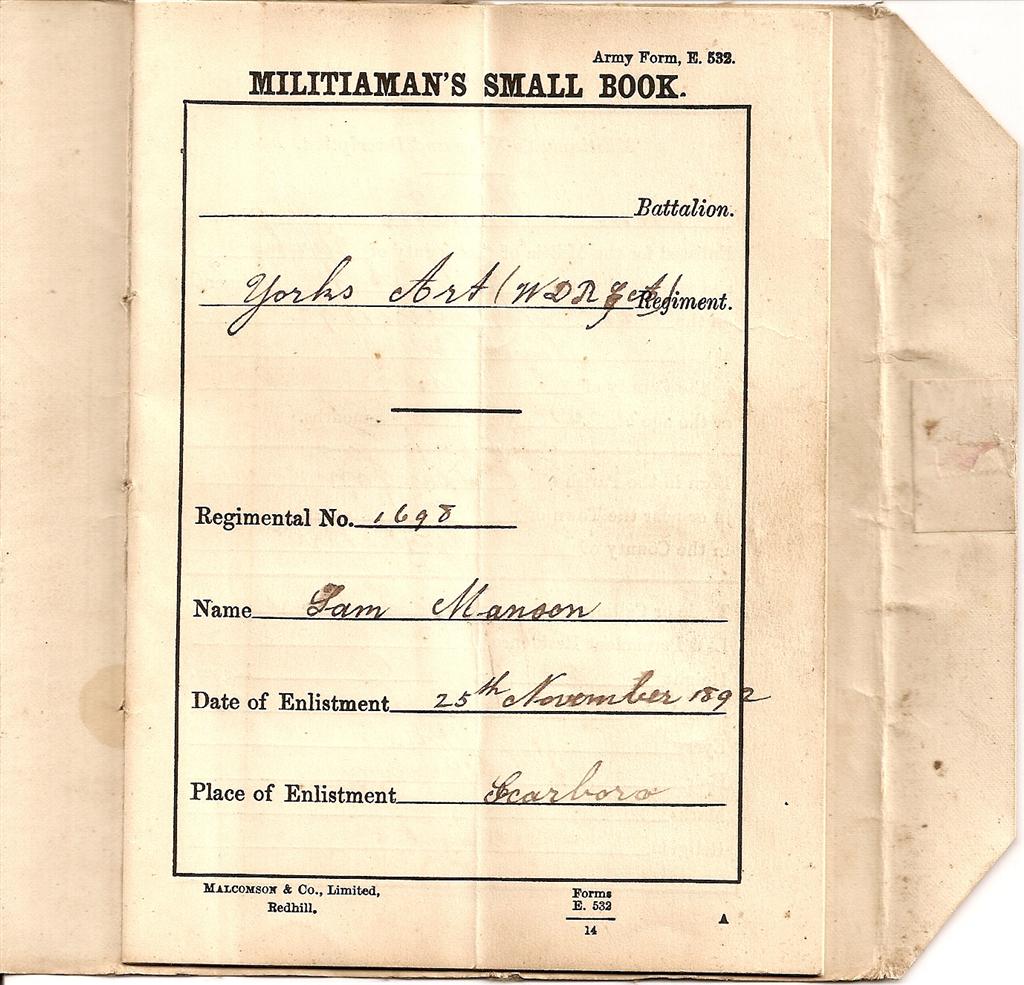 Army Form, E. 532.
MILITIAMAN'S SMALL BOOK.
Battalion.
Yorks Art (W D R G A) Regiment.
Regimental No. 1698
Name Sam Manson
Date of Enlistment 25th November 1892
Place of Enlistment Scarboro
MALCOMSON & Co., Limited,
Redhill.
Forms
E. 532
14